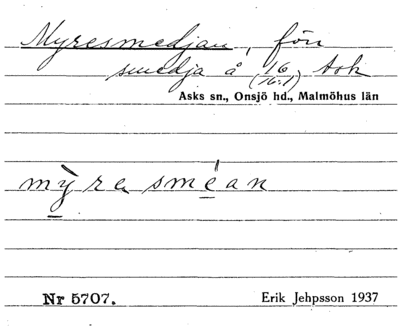 Myresmedjan, förr
smedja å 16 Ask
(16:1)
Asks sn., Onsjö hd., Malmöhus län
mỳra sméan
Nr 5707.
Erik Jehpsson 1937